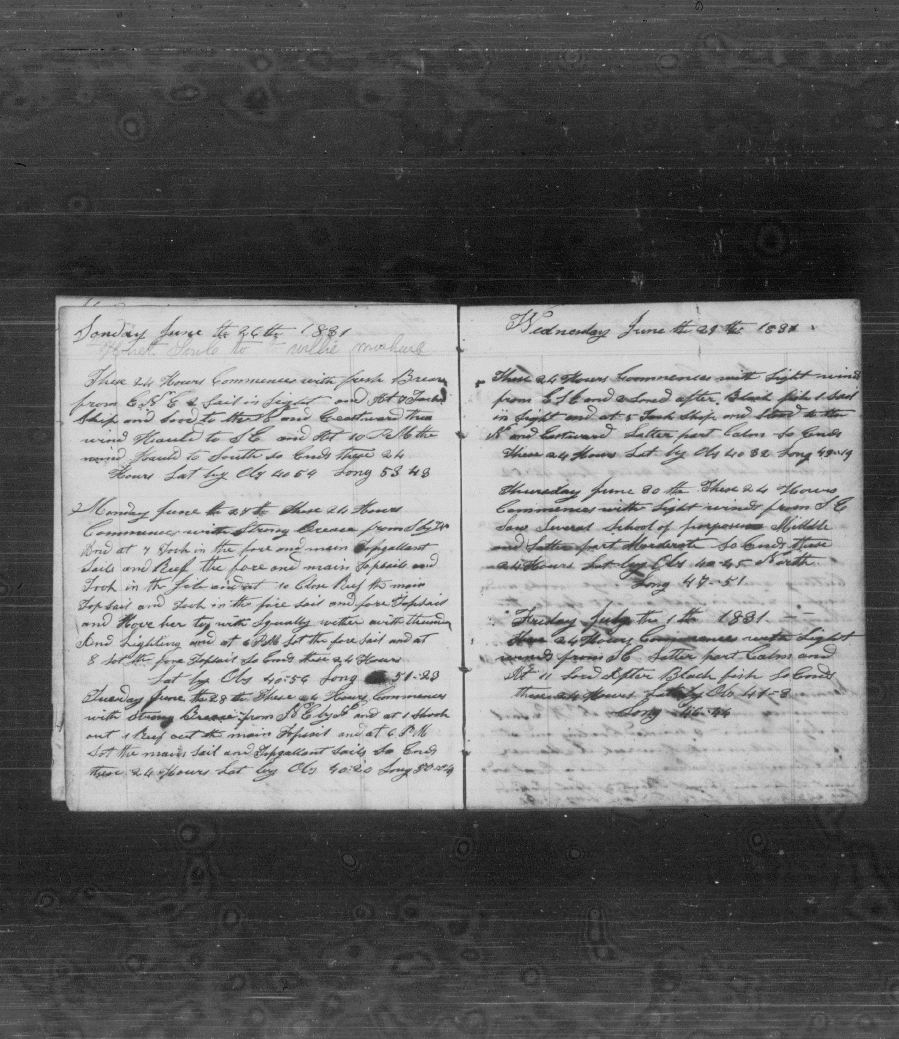 Sonday June the 26 the 1831
These 24 Hours Commences with fresh Breaz
from E N E 2 Sail in Sight and At 7 Tackd
Ship and Stood to the N and Eastward the
wind Hauld to S E and At 10 P M the
wind Hauld to South So Ends these 24
Hours Lat by Obs 40 54 Long 53 43
Monday June the 27 th These 24 Hours
Commences with Strong Brease from S by W
And at 7 Took in the fore and main Topgallant
Sails and Reef the fore and main Topsails and
Took in the Jib and at 10 Close Reef the main
Topsail and Took in the fore Sail and fore Topsail
and Hove her too with Squally wether with thunder
And Lighting and at 6 P M Set the fore Sail and at
8 Set the fore Topsail So Ends these 24 Hours
Lat by Obs 40-54 Long 51-23
Tuesday June the 28 th These 24 Hours Commences
with Strong Brease from and at 1 Shook
out 1 Reef out the main Topsail and at 6 P M
Set the main Sail and Topgallant Sails So Ends
these 24 Hours Lat by Obs 40-20 Long
Wednesday June the 29 the 1831
These 24 Hours Commences with Light winds
from E S E and 2 Lored after Black fish 1 Sail
in Sight and at 5 Tack Ship and Stood to the
N and Eastward Latter part Calm So Ends
These 24 Hours Lat by Obs 40 32 Long 49-19
Thuresday June 30 th These 24 Hours
Commences with Light winds from S E
Saw Several School of porpoises Middle
and Latter part Moderate So Ends these
24 Hours Lat by Obs 40-45 North
Long 47-51
Friday July the 1 th 1831
These 24 Hours Commences with Light
winds from S E Latter part Calm and
At 11 Lord After Black fish So Ends
these 24 Hours Lat by Obs 41-3
Long 46-44